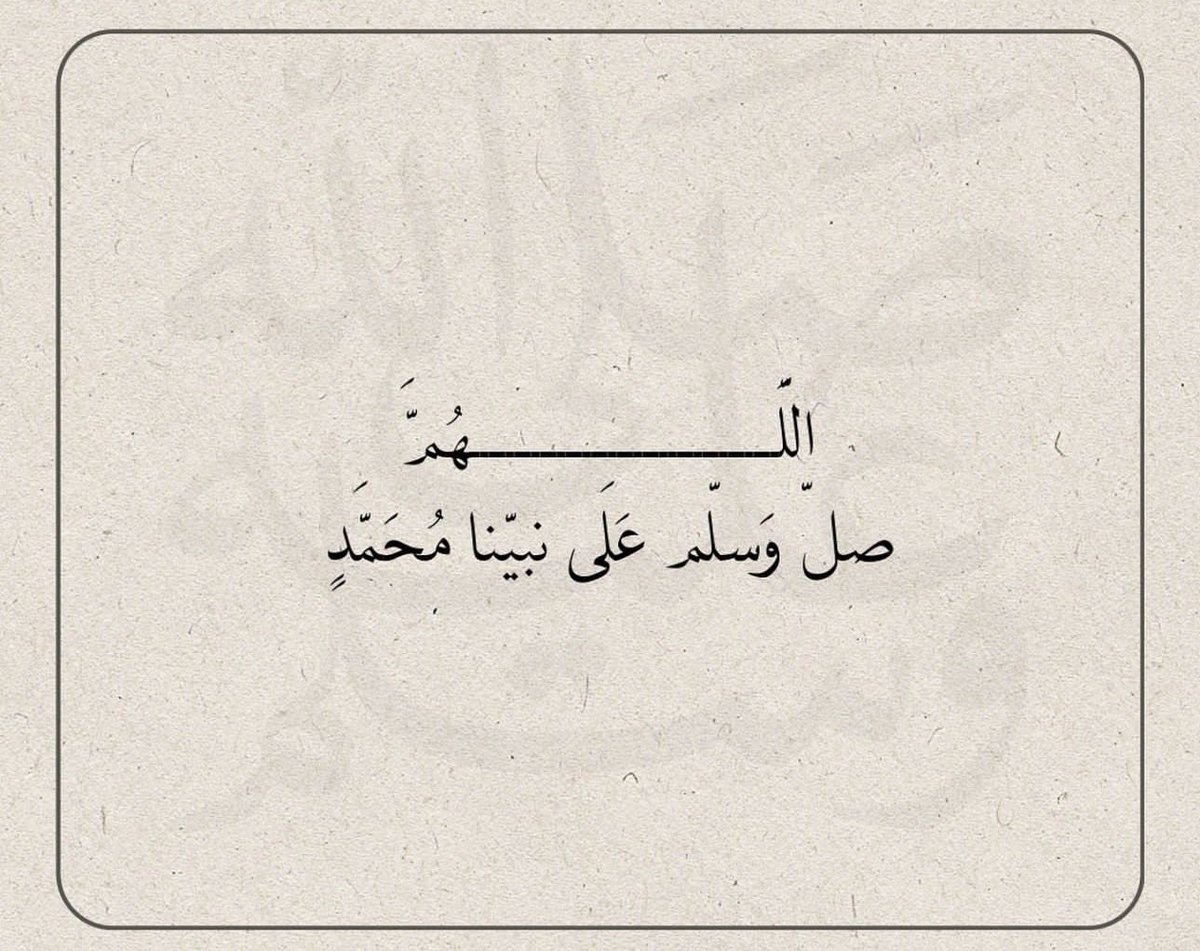 اللّـــــــــــــــــــــهُمَّ
صلّ وَسلّم عَلَى نبيّنا مُحَمَّدٍ